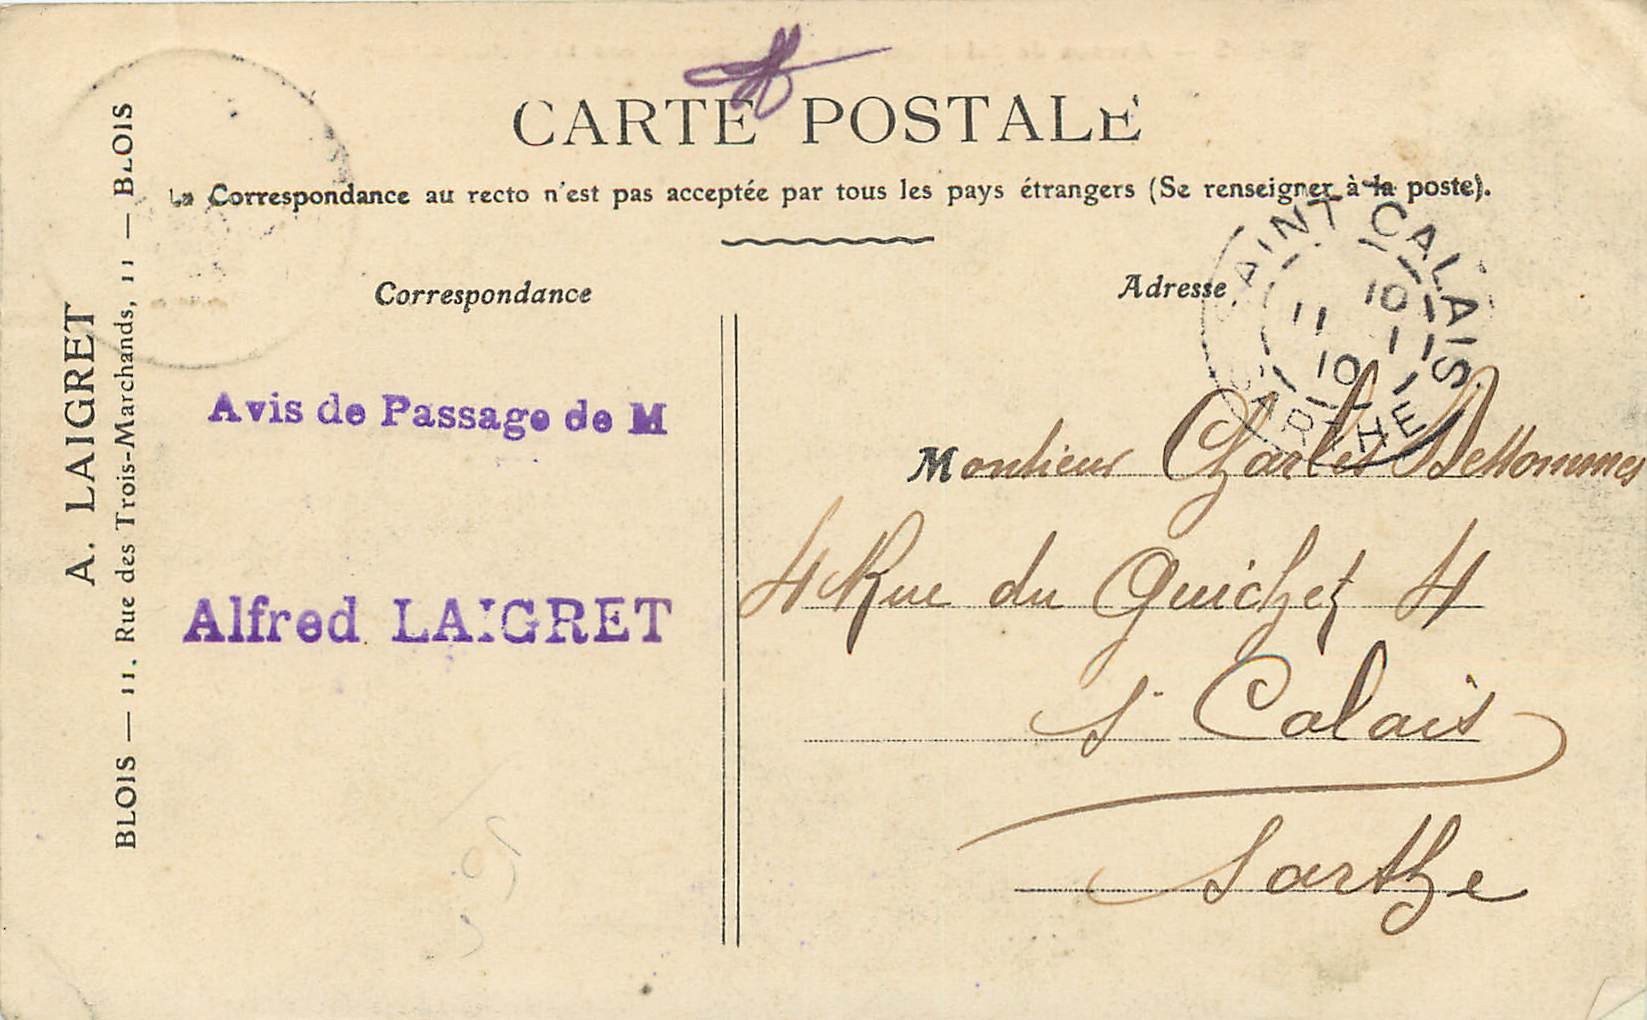 CARTE POSTALE
La Correspondance au recto n'est pas acceptée par tous les pays étrangers (Se renseigner à la poste).
Correspondance
Adresse
A. LAIGRET
BLOIS — 11, Rue des Trois-Marchands, 11 — BLOIS
SAINT CALAIS
10
11 1
10
SARTHE
Avis de Passage de M
Alfred LAIGRET
Monsieur Charles
4 Rue du Guichet 4
St Calais
Sarthe